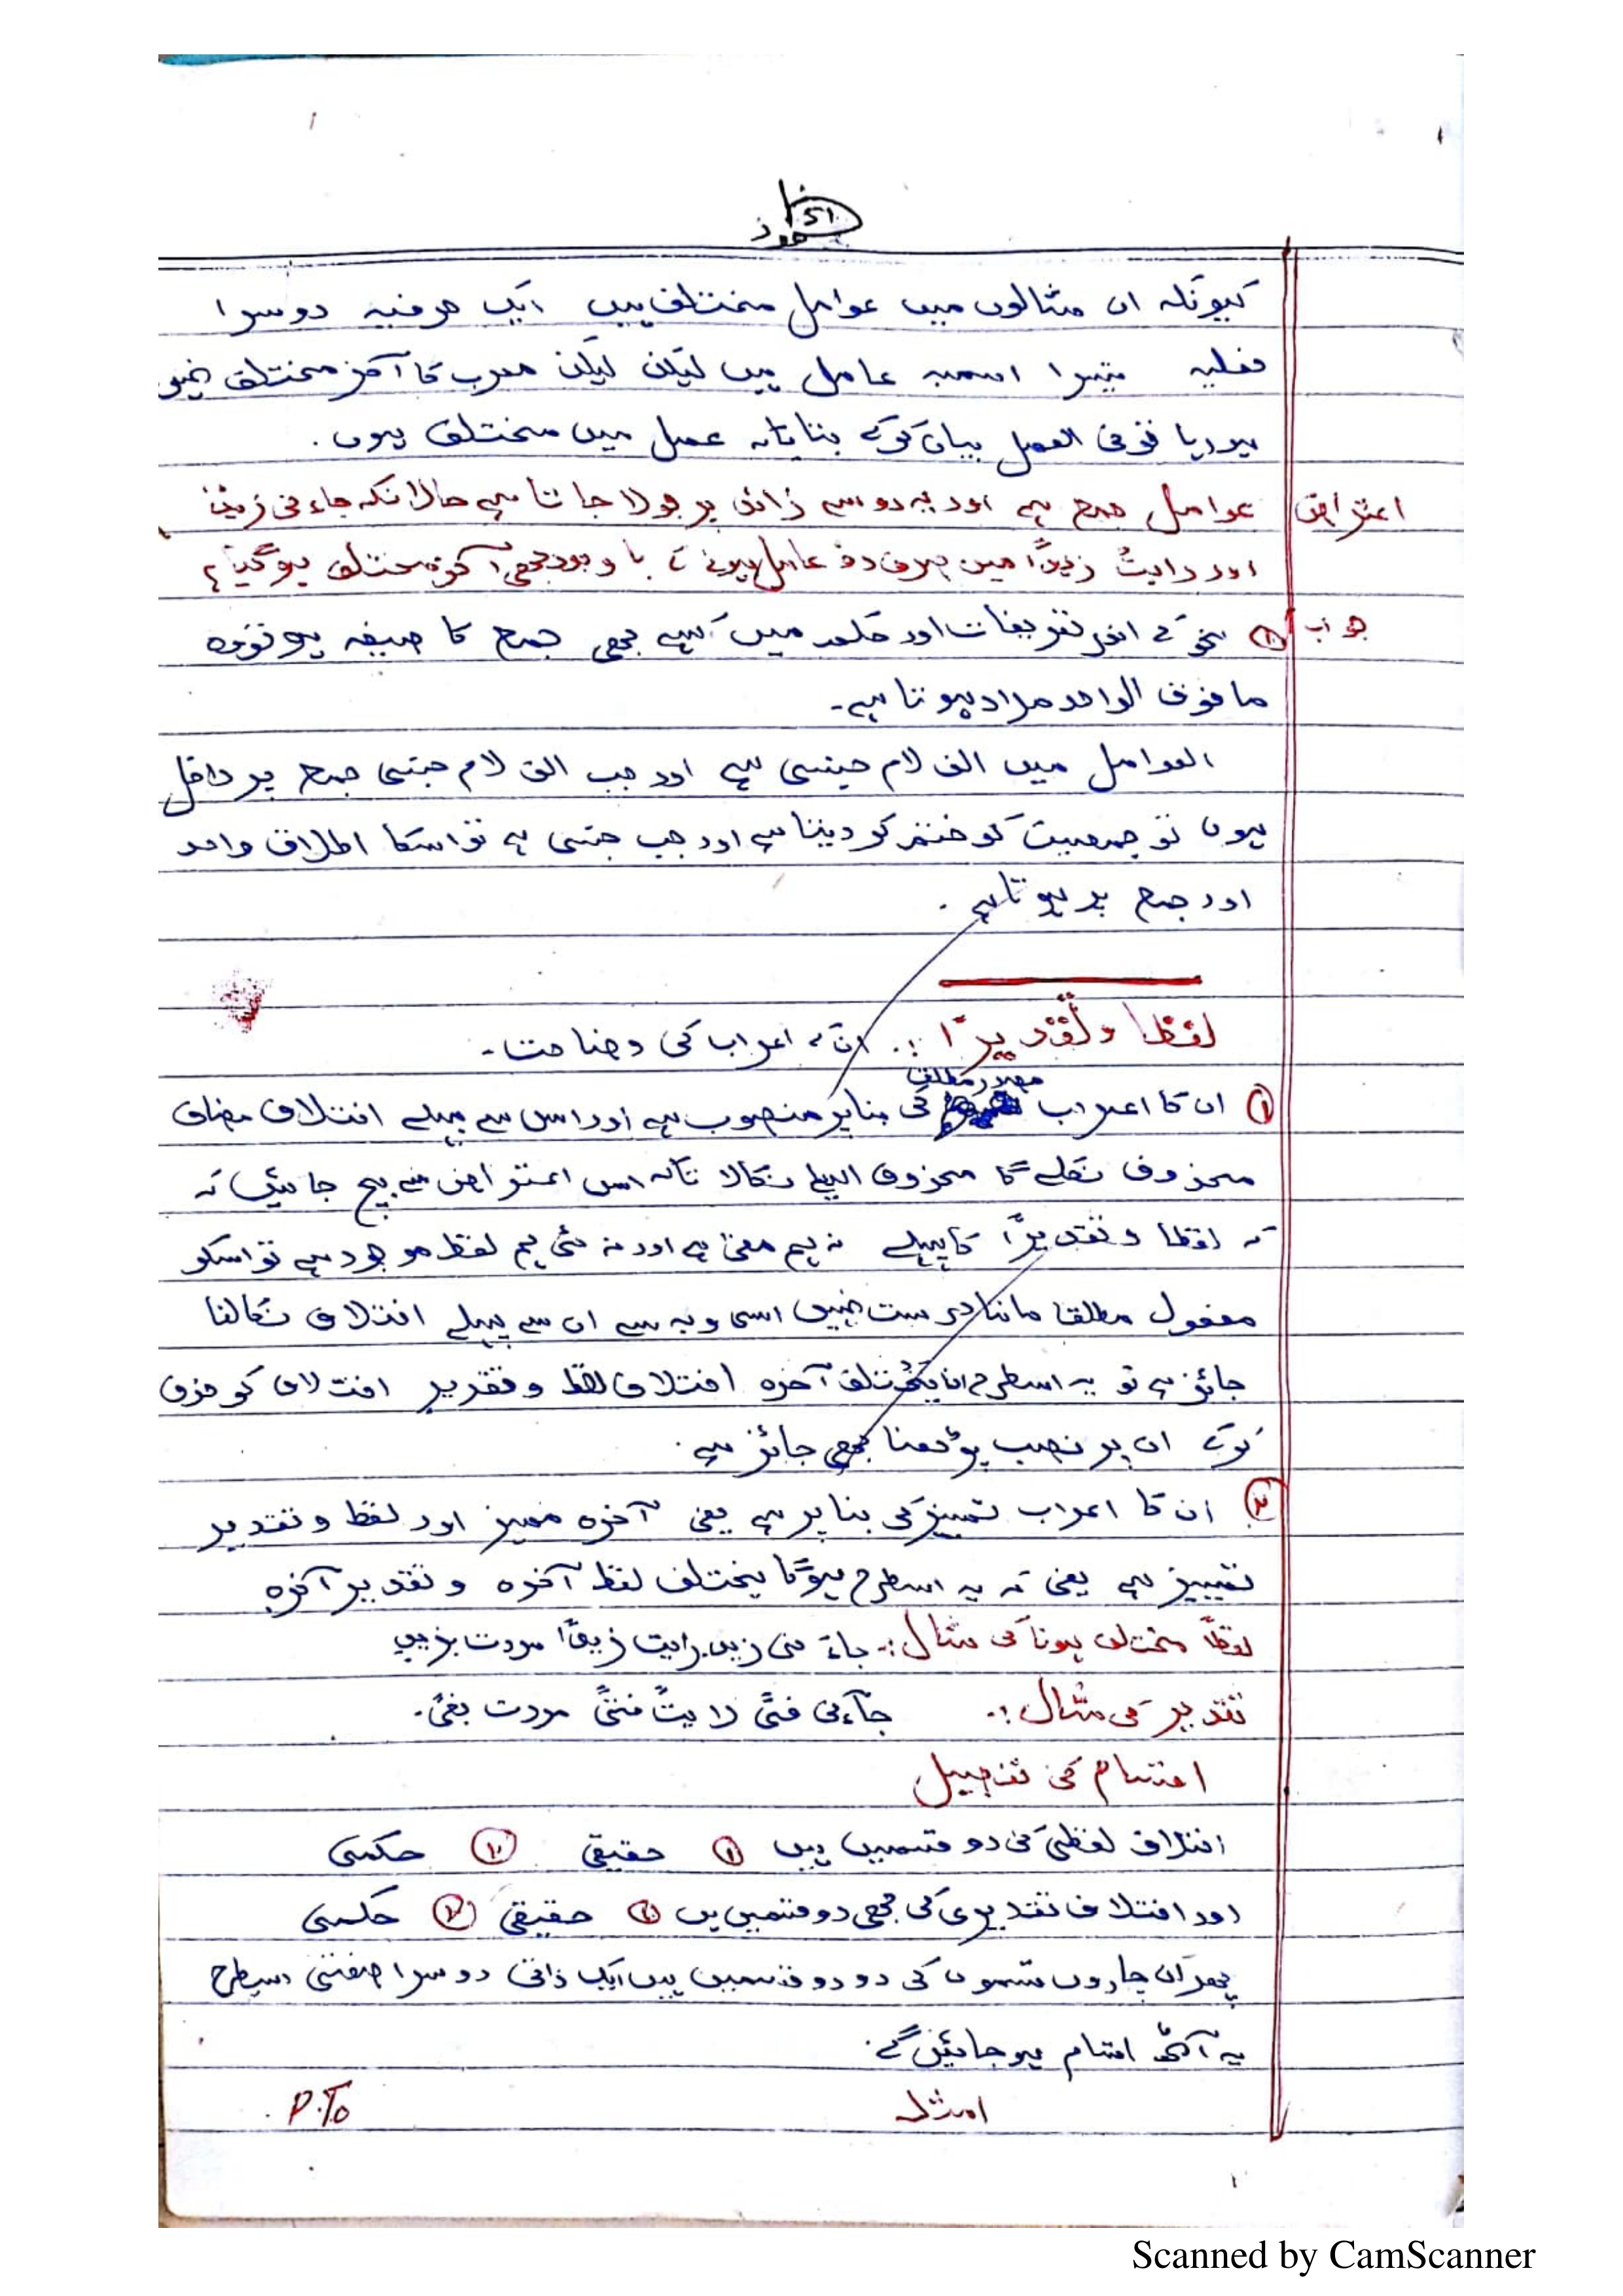 51
کیونکہ ان مثالوں میں عوامل مختلف ہیں ایک حرفیہ دوسرا
فعلیہ تیسرا اسمیہ عامل ہیں لیکن لیکن معرب کا آخر مختلف نہیں
ہورہا فی العمل بیان کرکے بتایا کہ عمل میں مختلف ہوں۔
اعتراض عوامل جمع ہے اور یہ دو سے زائد پر بولا جاتا ہے حالانکہ جاءنی زیدٌ
اور رایتُ زیدًا میں صرف دو عامل ہونے کے باوجود بھی آخرہ مختلف ہوگیا؟
جواب ① نحو کے اندر تعریفات اور میں کسے بھی جمع کا صیغہ ہو تو وہ
مافوق الواحد مراد ہوتا ہے۔
العوامل میں الف لام جنسی ہے اور جب الف لام جنسی جمع پر داخل
ہوں تو جمعیت کو ختم کر دیتا ہے اور جب جنسی ہے تو اسکا اطلاق واحد
اور جمع پر ہوتا ہے۔
لفظًا وتقدیرًا :۔ انکے اعراب کی وضاحت۔
① ان کا اعراب مصدر مطلق کی بنا پر منصوب ہے اور اس سے پہلے اختلاف مضاف
محذوف نکلے گا محذوف اسلیے نکالا تاکہ اس اعتراض سے بچ جائیں کہ
کہ لفظا وتقدیرًا کا پہلے نہ ہم معنی ہے اور نہ ہی ہم لفظ موجود ہے تو اسکو
مفعول مطلقا ماننا درست نہیں اسی وجہ سے ان سے پہلے اختلاف نکالنا
جائز ہے تو یہ اسطرح یختلف آخرہ اختلاف لفظ وتقدیر اختلاف کو حذف
کرکے ان پر نصب پڑھنا بھی جائز ہے۔
② ان کا اعراب تمییز کی بنا پر ہے یعنی آخرہ ممیز اور لفظ وتقدیر
تمییز ہے یعنی کہ یہ اسطرح ہوگا یختلف لفظ آخرہ وتقدیر آخرہ
لفظاً مختلف ہونا کی مثال :۔ جاء نی زید رایت زیدًا مررت بزید
تقدیر کی مثال :۔ جآءنی فتًی رایتُ فتًی مررت بفتًی۔
اقسام کی تفصیل
اختلاف لفظی کی دو قسمیں ہیں ① حقیقی ② حکمی
اور اختلاف تقدیری کی بھی دو قسمیں ہیں ① حقیقی ② حکمی
پھر ان چاروں قسموں کی دو دو قسمیں ہیں ایک ذاتی دوسرا صفتی اسطرح
یہ آٹھ اقسام ہو جائیں گے۔
امثلہ
P.To
Scanned by CamScanner